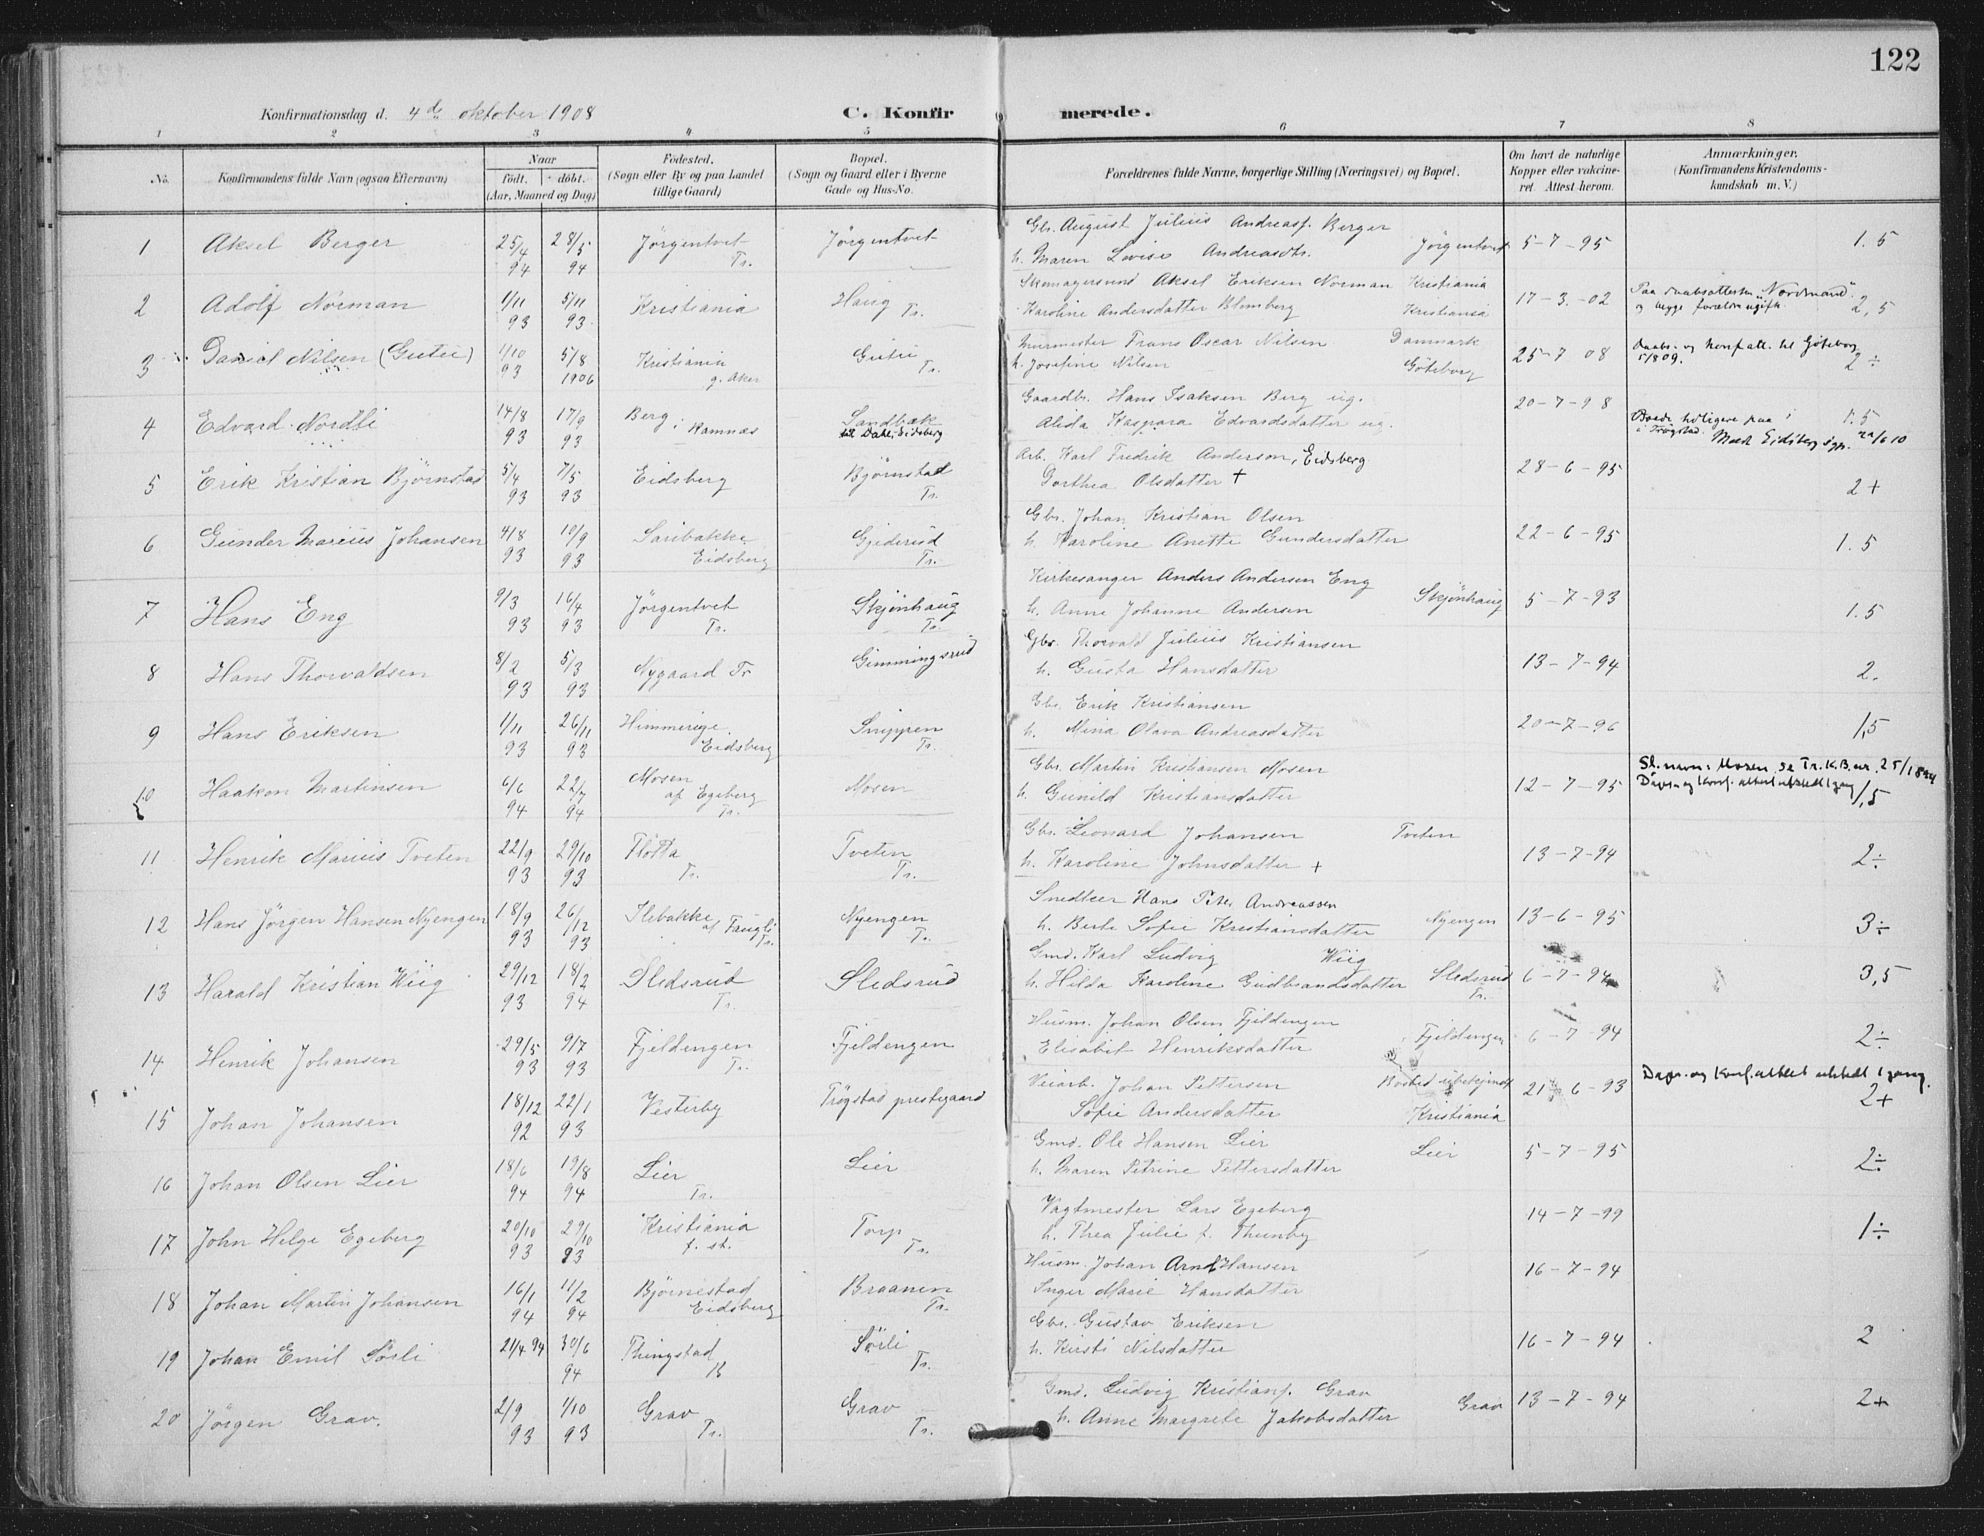 122
Konfirmationsdag d. 4de oktober 1908 C. Konfirmerede.
1 2 3 4 5 6 7 8
No. Konfirmandens fulde Navn (ogsaa Efternavn) Naar født. døbt. (Aar, Maaned og Dag) Fødested. (Sogn eller By og paa Landet tillige Gaard) Bopæl. (Sogn og Gaard eller i Byerne Gade og Hus-No. Forældrenes fulde Navne, borgerlige Stilling (Næringsvei) og Bopæl. Om havt de naturlige Kopper eller vakcineret. Attest herom. Anmærkninger. (Konfirmandens Kristendomskundskab m. V.)
1 Aksel Berger 25/4 94 28/5 94 Jörgentvet Tr. Jörgentvet
Gbr. August Julius Andreasf. Berger
h. Maren Lovise Andreasdtr. Jörgentvet 5-7-95 1.5
2 Adolf Norman 1/11 93 5/11 93. Kristiania Haug Tr.
Skomagersvend Aksel Eriksen Norman Kristiania
Karoline Andersdatter Blomberg Kristiania 17-3-02 Paa daabsattesten "Nordmand" og begge forældre ugifte 2,5
3 Daniel Nilsen (Gutu) 1/10 93 5/8 1906 Kristiania g. Aker Gutu Tr.
Murmester Frans Oscar Nilsen Danmark
h. Josefine Nilsen Göteborg 25-7 08 Daabs- og konf att. til Göteborg 5/8 09. 2÷
4 Edvard Nordli 14/8 93 17/9 93 Berg i Ramnæs Sandbæk till Dahl, Eidsberg
Gaardbr. Hans Isaksen Berg ug.
Alida Kaspara Edvardsdatter ug. 20-7-98 1.5
i Trøgstad. Eidsberg
5 Erik Kristian Björnstad 5/4 93 7/5 93 Eidsberg Björnstad Tr.
Arb. Karl Fredrik Anderson, Eidsberg
Dorthea Olsdatter + 28-6-95 2+
6 Gunder Marius Johansen 4/8 93 10/9 93 Saubakke Eidsberg Gjederud Tr.
Gbr. Johan Kristian Olsen
h. Karoline Anette Gundersdatter 22-6-95 1.5
7 Hans Eng 9/3 93 16/4 93 Jörgentvet Tr. Skjönhaug Tr.
Kirkesanger Anders Andersen Eng
h. Anne Johanne Andersen Skjönhaug 5-7-93 1.5
8 Hans Thorvaldsen 8/2 93 5/3 93 Nygaard Tr Gimmingsrud
Gbr. Thorvald Julius Kristiansen
h. Gusta Hansdatter 13-7-94 2.
9 Hans Eriksen 1/11 93 26/11 93 Himmerige Eidsberg Snippen Tr.
Gbr. Erik Kristiansen
h. Mina Olava Andreasdatter 20-7-96 1,5
10 Haakon Martinsen 6/6 94 22/7 94 Mosen af Egeberg Tr. Mosen
Gbr. Martin Kristiansen Mosen
h. Gunild Kristiansdatter 12-7-95 Sl.navn: Mosen, se Tr.K.B.nr. 25/1894
Daps- og Konf. attest utstedt 1 gang 1,5
11 Henrik Marius Tveten 22/9 93 29/10 93 Flotta Tr. Tveten Tr.
Gbr. Leonard Johansen Tveten
h. Karoline Johnsdatter + 13-7-94 2÷
12 Hans Jörgen Hansen Nyengen 18/9 93 26/12 93 Ilebakke af Fangli Tr. Nyengen Tr.
Snedker Hans Peter Andreassen
h. Berte Sofie Kristiansdatter Nyengen 13-6-95 3÷
13 Harald Kristian Wiig 29/12 93 18/2 94 Sledsrud Tr. Sledsrud
Gmd. Karl Ludvig Wiig
h. Hilda Karoline Gudbrandsdatter Sledsrud Tr. 6-7-94 3,5
14 Henrik Johansen 29/5 93 9/7 93 Fjeldengen Tr. Fjeldengen
Husm. Johan Olsen Fjeldengen
Elisabet Henriksdatter Fjeldengen 6-7-94 2÷
15 Johan Johansen 18/12 92 22/1 93 Vesterby Trögstad prestegaard
Veiarb. Johan Pettersen Bosted ubekjendt
Sofie Andersdatter Kristiania 21-6-93 Daps- og Konf. attest utstedt 1 gang. 2+
16 Johan Olsen Lier 18/6 94 19/8 94 Lier Tr. Lier
Gmd. Ole Hansen Lier Lier
h. Maren Petrine Pettersdatter 5-7-95 2÷
17 John Helge Egeberg 20/10 93 29/10 93 Kristiania f. st. Torp Tr.
Vagtmester Lars Egeberg
h. Thea Julie f. Thunby 14-7-99 1÷
18 Johan Martin Johansen 16/1 94 11/2 94 Björnestad Eidsberg Braanen Tr.
Husm. Johan Arnt Hansen
Inger Marie Hansdatter 16-7-94
19 Johan Emil Sörli 21/4 94 30/6 94 Thingstad Sörli Tr.
Gbr. Gustav Eriksen
h. Kirsti Nilsdatter 16-7-94 2
20 Jörgen Grav. 2/9 93 1/10 93 Grav Tr. Grav Tr.
Gmd. Ludvig Kristianf. Grav
h. Anne Margrete Jakobsdatter Grav 13-7-94 2+